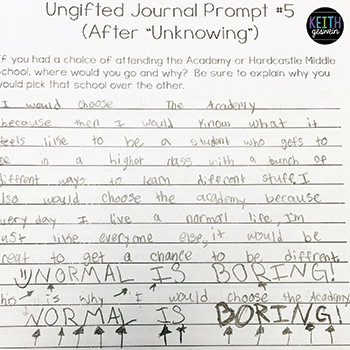 Ungifted Journal Prompt #5
(After "Unknowing")
KEITH
geswein
If you had a choice of attending the Academy or Hardcastle Middle
School, where would you go and why? Be sure to explain why you
would pick that school over the other.
I would choose The Academy
because then I would know what it
feels like to be a student who gets to
be in a higher class with a bunch of
different ways to learn different stuff. I
also would choose the academy because
every day I live a normal life, I'm
just like everyone else, it would be
great to get a chance to be different.
NORMAL IS BORING!
this is why I would choose the Academy
NORMAL IS BORING!